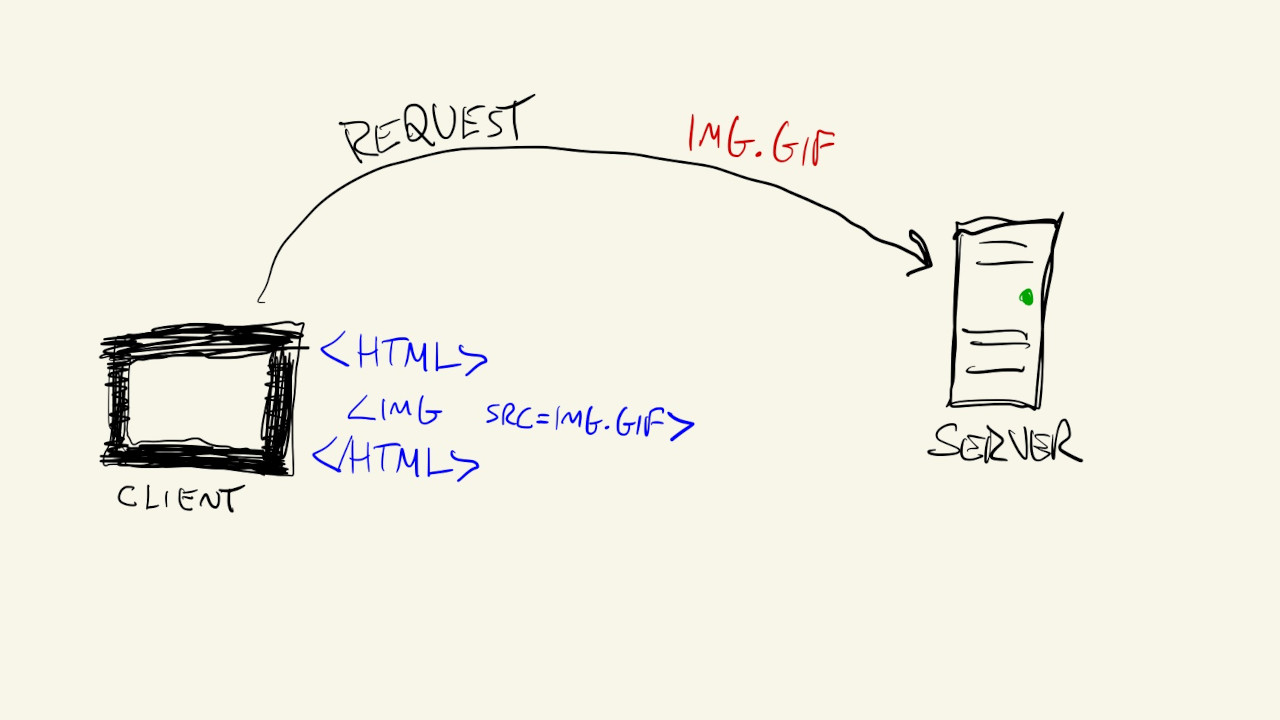 REQUEST
IMG.GIF
<HTML>
<IMG SRC=IMG.GIF>
</HTML>
CLIENT
SERVER